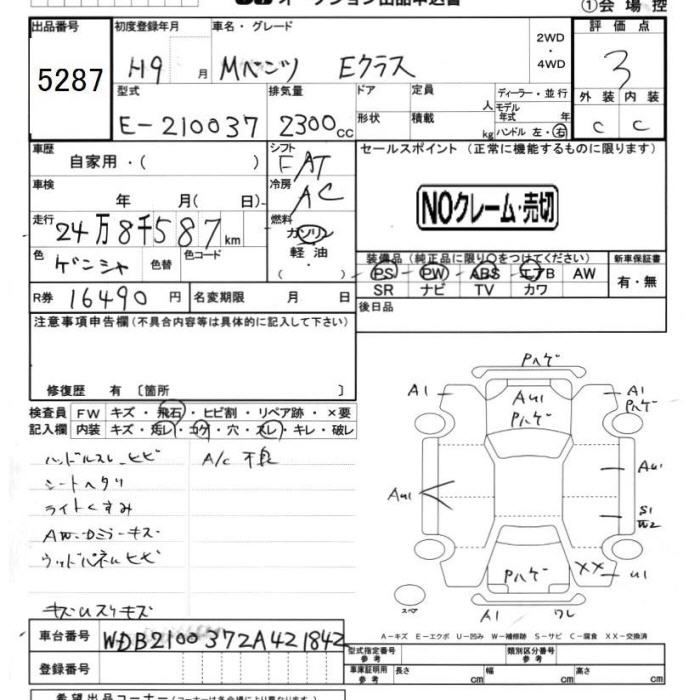 ①会場控
出品番号
5287
初度登録年月
H9 月
車名・グレード
Mベンツ Eクラス
2WD
・
4WD
評価点
3
型式
E-210037
排気量
2300 cc
ドア
形状
定員
人
積載
kg
ディーラー・並行
モデル年式 年
ハンドル 左・右
外装 内装
C C
車歴
自家用・( )
シフト
FAT
セールスポイント (正常に機能するものに限ります)
NOクレーム・売切
車検
年 月( 日)
冷房
AC
走行
24万8千587km
燃料
ガソリン
軽油
・
( )
色
ゲンシャ
色替
色コード
装備品 (純正品に限り○をつけてください)
PS PW ABS エアB AW
SR ナビ TV カワ
新車保証書
有・無
R券 16490円
名変期限 月 日
後日品
注意事項申告欄 (不具合内容等は具体的に記入して下さい)
修復歴 有 〔箇所 〕
検査員
記入欄
FW キズ・飛石・ヒビ割・リペア跡・×要
内装 キズ・汚レ・コゲ・穴・スレ・キレ・破レ
ハンドルスレ、ヒビ A/C 不良
シートヘタリ
ライトくすみ
AW・Dミラーキズ
ウッドパネルヒビ
キズUスリキズ
Pハゲ
A1
AU1
Pハゲ
A1
Pハゲ
AU1
AU1
S1
W2
XX
U1
Pハゲ
スペア
A1 ワレ
A-キズ E-エクボ U-凹み W-補修跡 S-サビ C-腐食 XX-交換済
車台番号 WDB2100372A421842
登録番号
型式指定番号
参考
類別区分番号
参考
車庫証明用
参考
長さ cm
幅 cm
高さ cm
希望出品コーナー